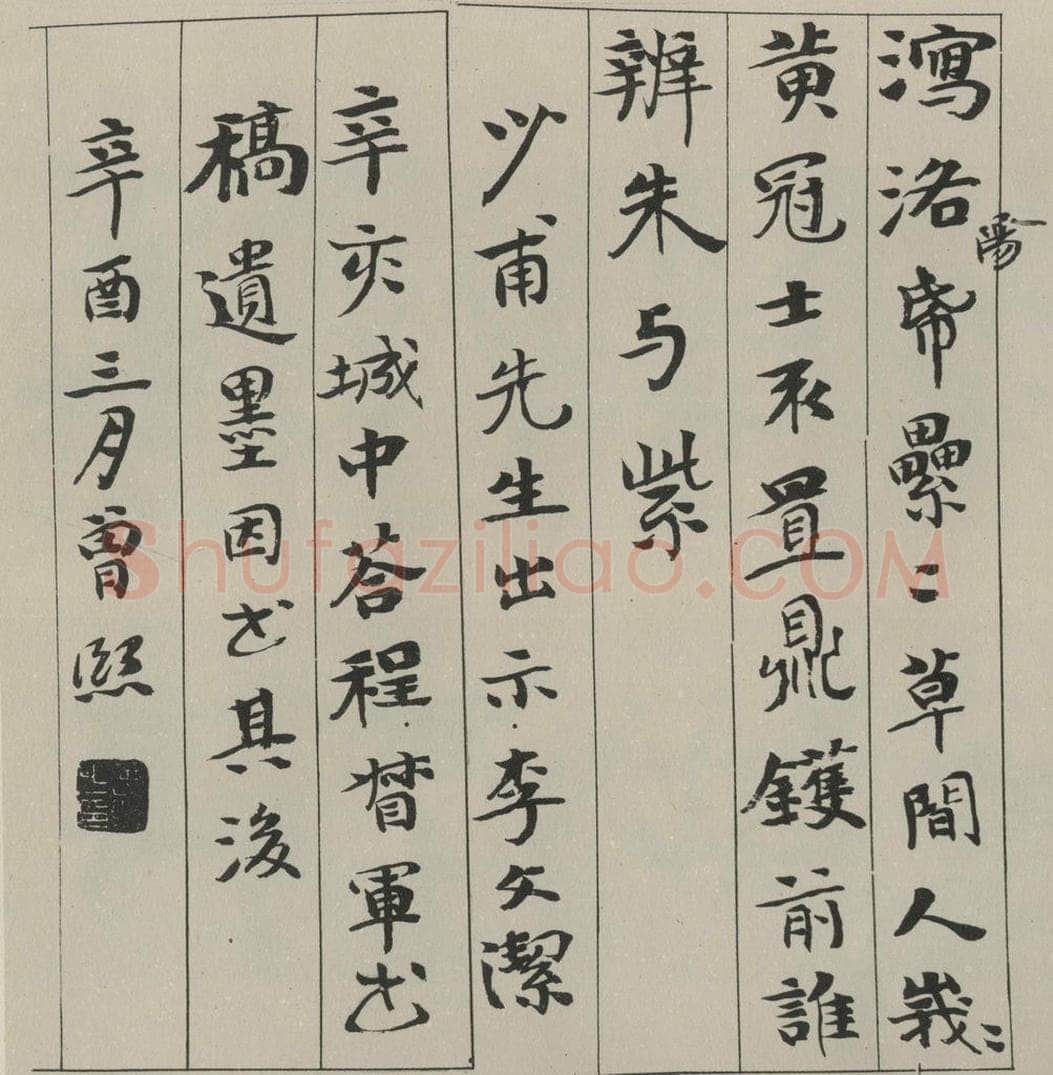 瀉洛陽帋纍〻草間人峩〻
黄冠士不置鼎鑊前誰
辨朱与紫
少甫先生出示李文潔
辛亥城中荅程督軍書
稿遺墨因書其後
辛酉三月曾熙
Shufaziliao.COM